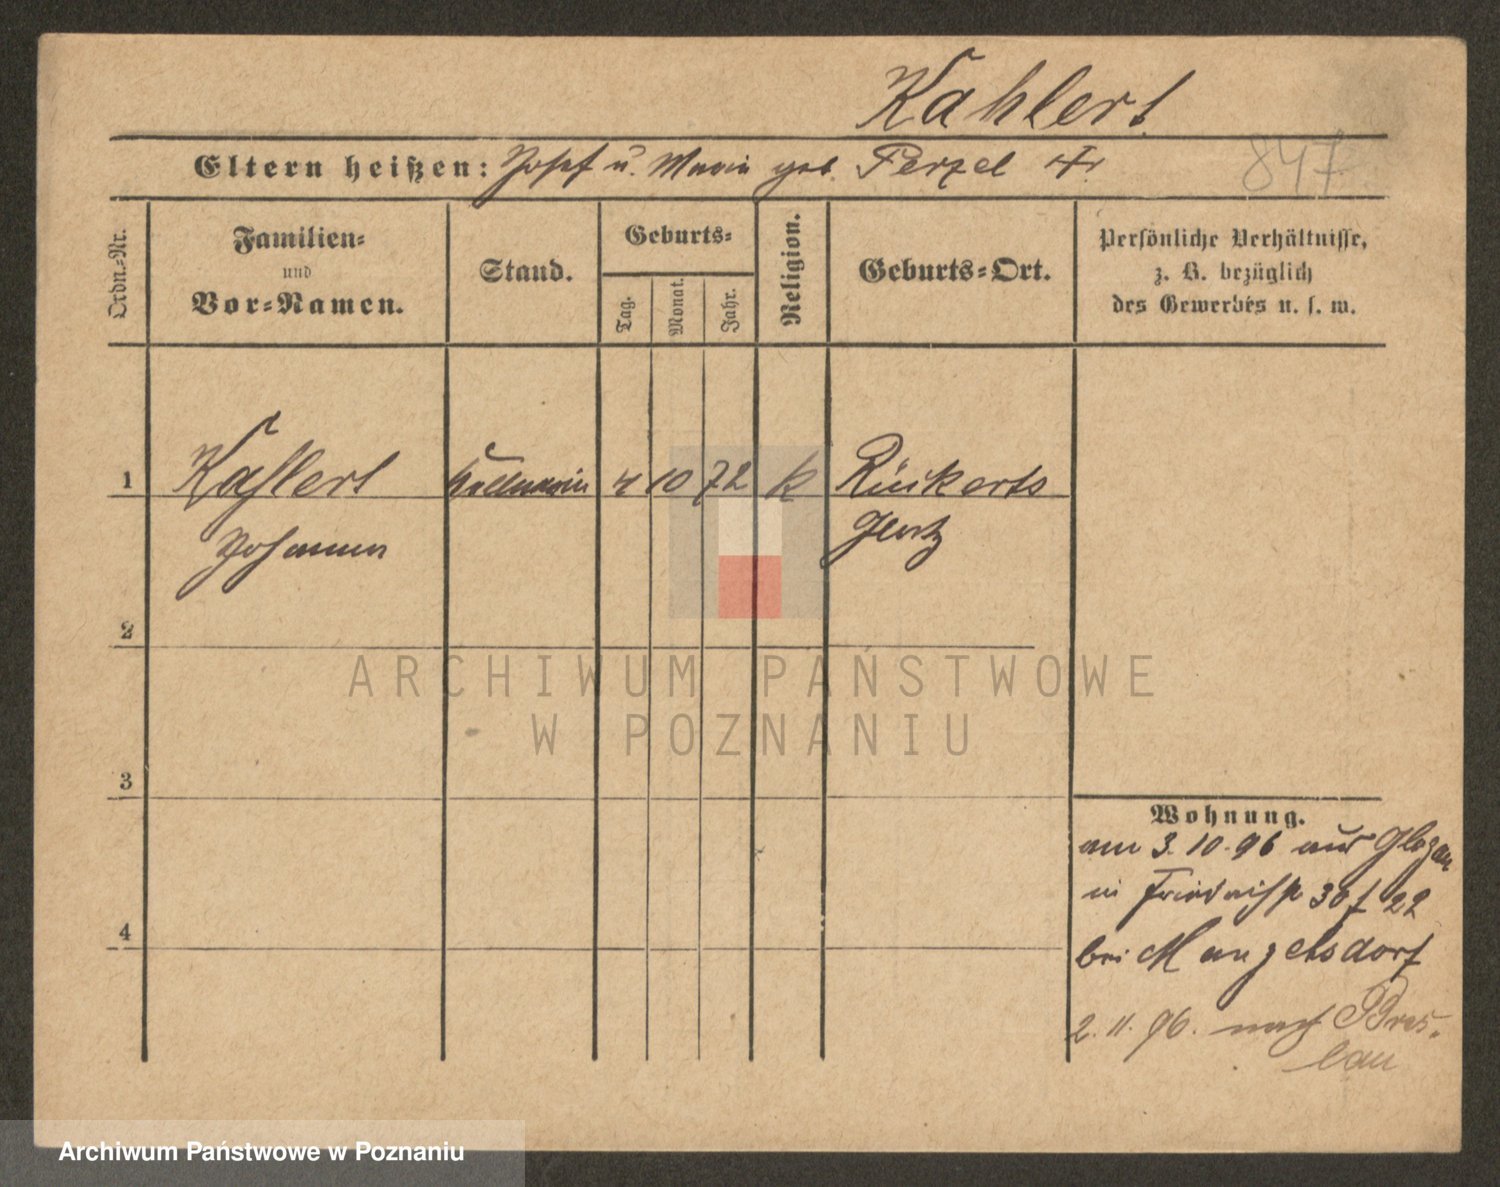 Kahlert
Eltern heißen: Josef u. Maria geb. Perzel
847
Ordn.-Nr.
Familien-
und
Vor-Namen.
Stand.
Geburts-
Tag.
Monat.
Jahr.
Religion.
Geburts-Ort.
Persönliche Verhältnisse,
z. B. bezüglich
des Gewerbes u. s. w.
1 Kahlert 4 10 72 k Rückerts
Johanna Glatz
2
3
4
Wohnung.
am 3.10.96 aus Glogau
in 30 22
bei Mangelsdorf
2.11.96. nach Bres-
lau
ARCHIWUM PAŃSTWOWE
W POZNANIU
Archiwum Państwowe w Poznaniu